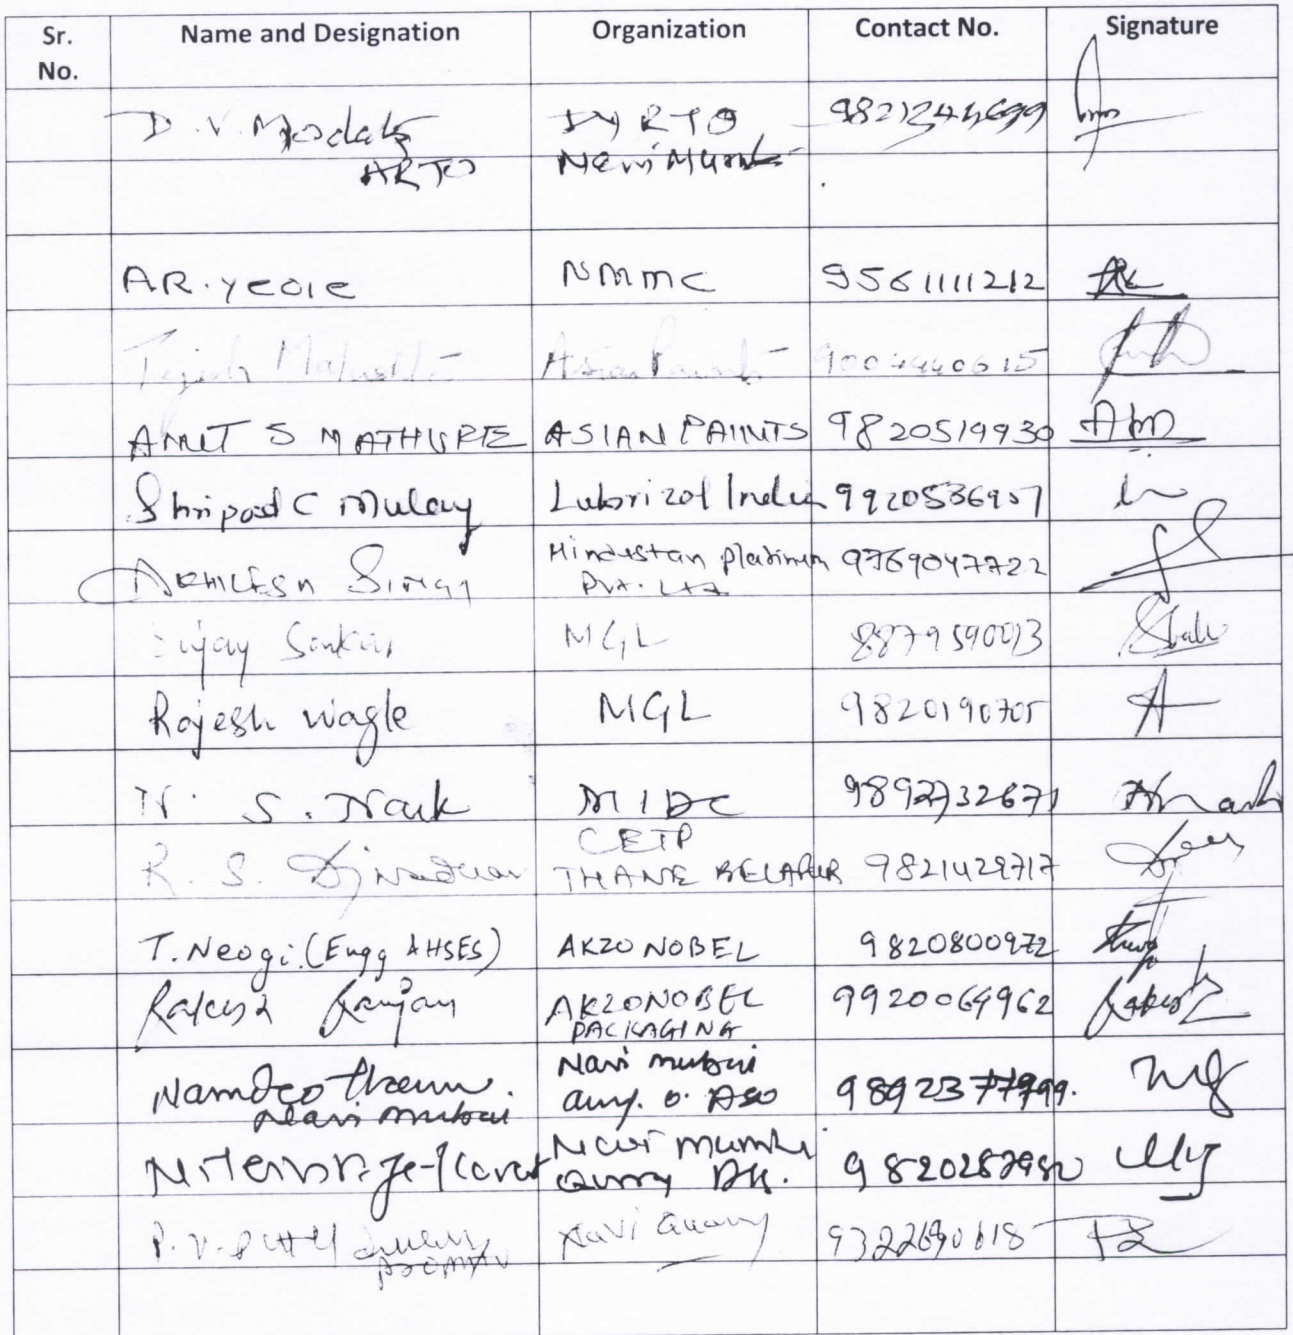 Sr. No. Name and Designation Organization Contact No. Signature
D. V. Modak DYRTO 9821244699
ARTO Navi Mumbai
A.R. Yeole NMMC 9561111212
Asian Paints 9004440615
AMIT S MATHURE ASIAN PAINTS 9820519930
Shripad C Mulay Lubrizol India 9920536907
AKHILESH SINGH Hindustan Platinum 9769047722
Pvt. Ltd
Sankar MGL 8879590013
Rajesh Wagle MGL 9820190705
N. S. Naik MIDC 9892732671
CETP
R. S. THANE BELAPUR 9821429717
T. Neogi (Engg & HSES) AKZO NOBEL 9820800972
Rakesh Ranjan AKZONOBEL 9920064962
PACKAGING
Namdeo Navi mubai 9892377999.
Navi mubai O. Aso
Navi Mumbi 9820287980
P. V. Navi Quarry 9322690618